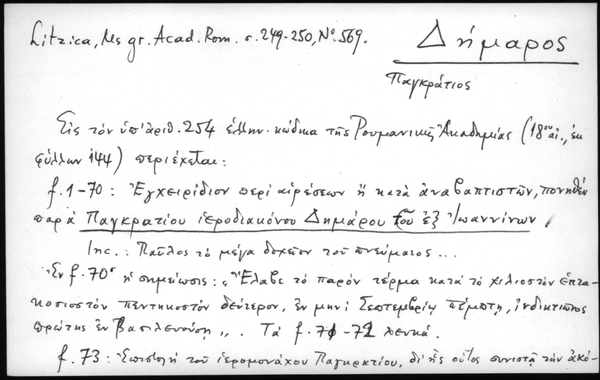 Litzica, Ms gr. Acad. Rom. σ. 249-250, No. 569.
Δήμαρος
Παγκράτιος
Εἰς τὸν ὑπ' ἀριθ. 254 ἑλλην. κώδικα τῆς Ρουμανικῆς Ἀκαδημίας (18ου αἰ., ἐκ
φύλλων 144) περιέχεται:
f. 1-70: Ἐγχειρίδιον περὶ αἱρέσεων ἢ κατὰ ἀναβαπτιστῶν, πονηθὲν
παρὰ Παγκρατίου ἱεροδιακόνου Δημάρου τοῦ ἐξ Ἰωαννίνων.
Inc.: Παῦλος τὸ μέγα δοχεῖον τοῦ πνεύματος ...
Ἐν f. 70α ἡ σημείωσις: "Ἔλαβε τὸ παρὸν τέρμα κατὰ τὸ χιλιοστὸν ἑπτα-
κοσιοστὸν πεντηκοστὸν δεύτερον, ἐν μηνὶ Σεπτεμβρίῳ πέμπτῃ, ἰνδικτιῶνος
πρώτης ἐν Βασιλευούσῃ". Τὰ f. 71-72 λευκά.
f. 73: Ἐπιστολὴ τοῦ ἱερομονάχου Παγκρατίου, δι' ἧς οὗτος συνιστᾷ τὴν ἀκό-